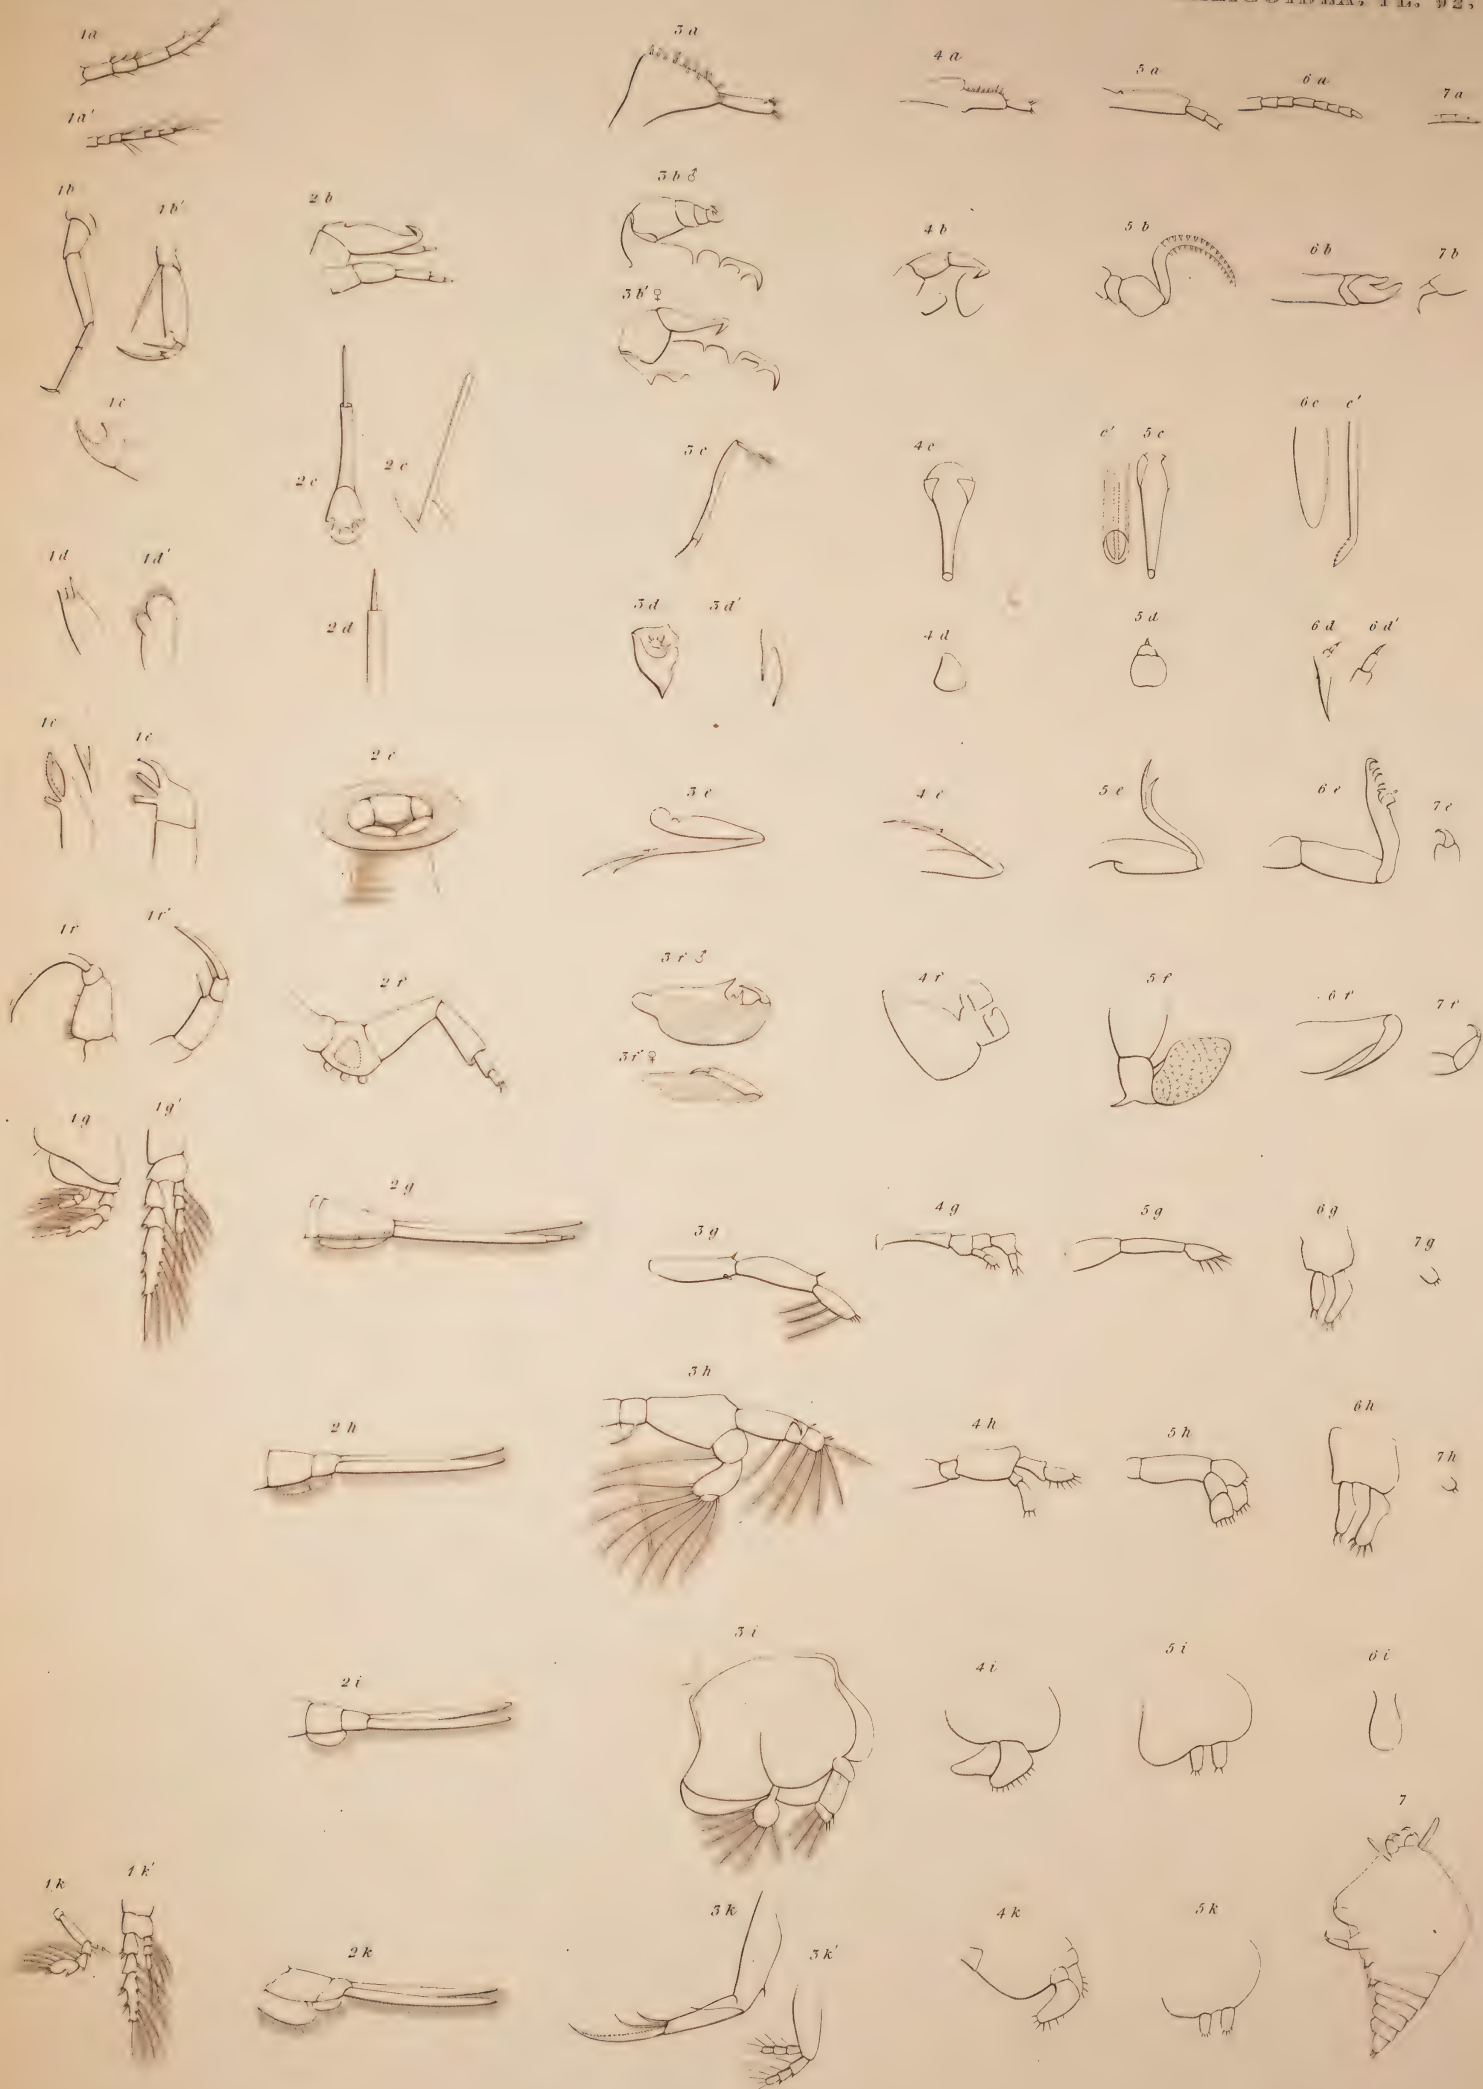 PL. 92.
1a 3a 4a 5a 6a 7a
1a'
1b 1b' 2b 3b♂ 4b 5b 6b 7b
3b'♀
1c 2c 2c 3c 4c c' 5c 6c c'
1d 1d' 2d 3d 3d' 4d 5d 6d 6d'
1e 1e 2e 3e 4e 5e 6e 7e
1f 1f' 2f 3f♂ 4f 5f 6f 7f
3f'♀
1g 1g' 2g 3g 4g 5g 6g 7g
2h 3h 4h 5h 6h 7h
2i 3i 4i 5i 6i
7
1k 1k' 2k 3k 3k' 4k 5k